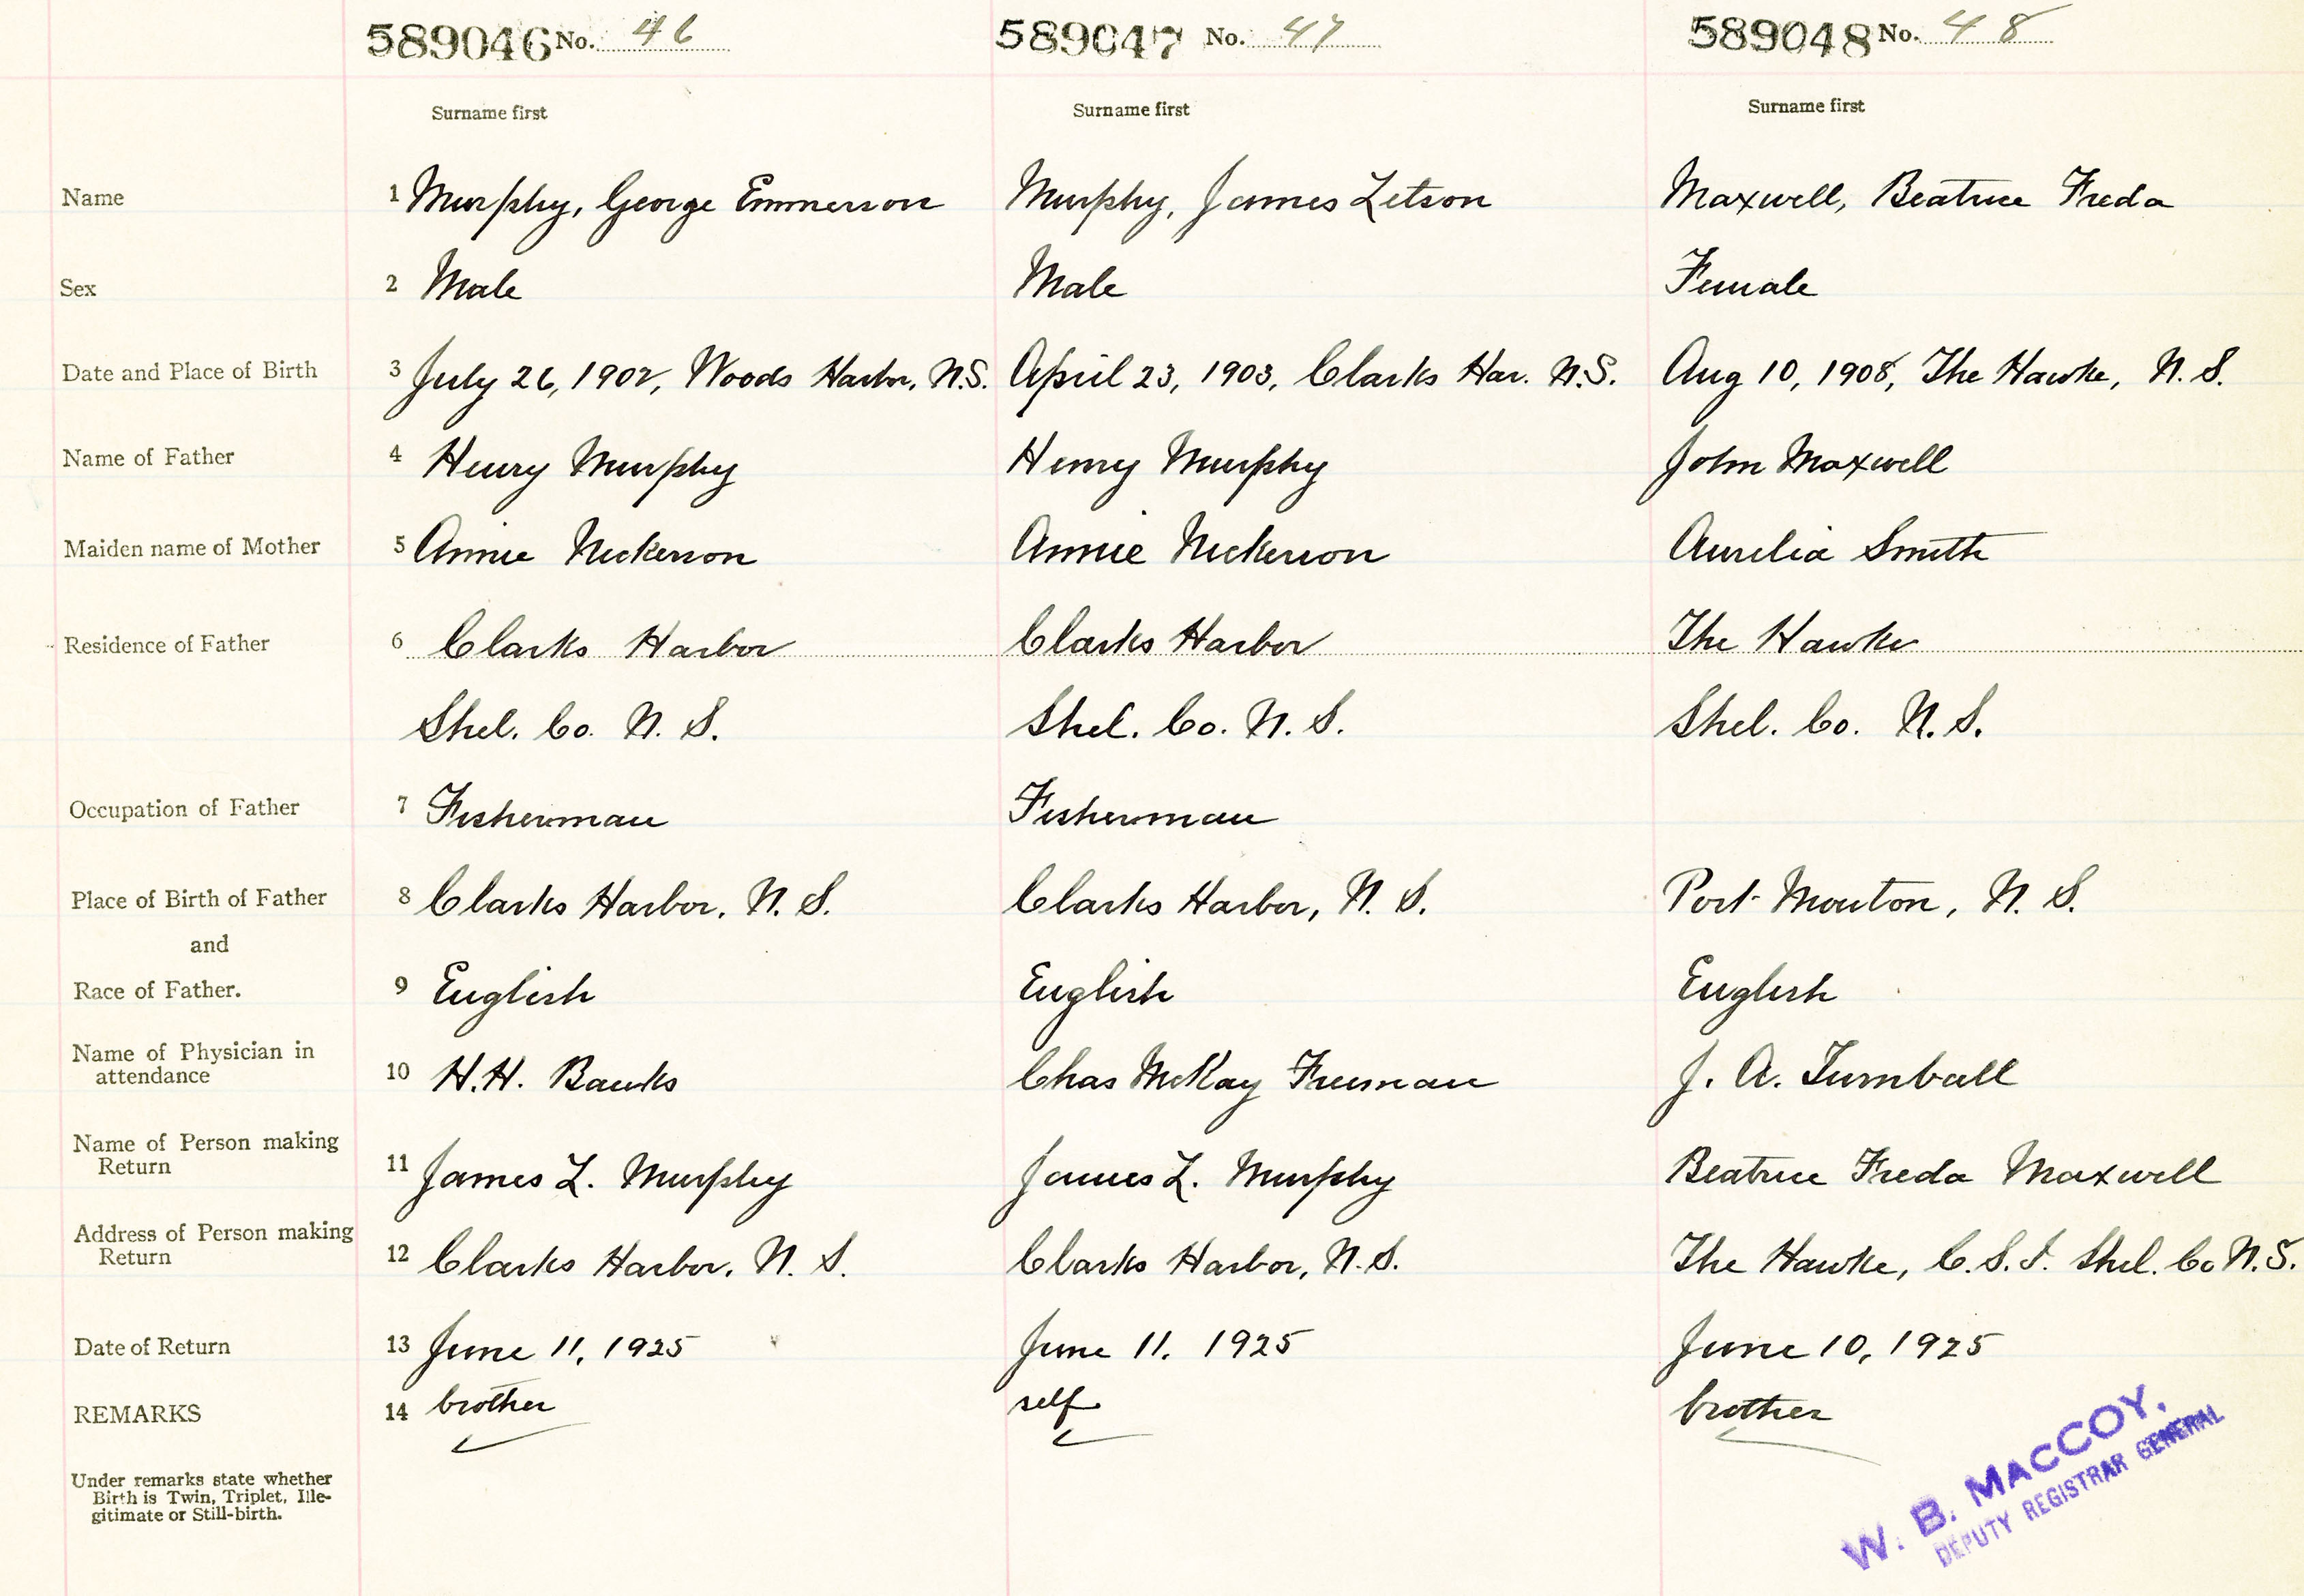 589046 No. 46 589047 No. 47 589048 No. 48
Surname first Surname first Surname first
Name 1 Murphy, George Emmerson Murphy, James Letson Maxwell, Beatrice Freda
Sex 2 Male Male Female
Date and Place of Birth 3 July 26, 1902, Woods Harbor, N.S. April 23, 1903, Clarks Har. N.S. Aug 10, 1908, The Hawke, N. S.
Name of Father 4 Henry Murphy Henry Murphy John Maxwell
Maiden name of Mother 5 Annie Nickerson Annie Nickerson Aurelia Smith
Residence of Father 6 Clarks Harbor Clarks Harbor The Hawke
Shel. Co. N. S. Shel. Co. N. S. Shel. Co. N. S.
Occupation of Father 7 Fisherman Fisherman
Place of Birth of Father 8 Clarks Harbor, N. S. Clarks Harbor, N. S. Port Mouton, N. S.
and
Race of Father. 9 English English English
Name of Physician in
attendance 10 H.H. Banks Chas McKay Freeman J. A. Turnbull
Name of Person making
Return 11 James L. Murphy James L. Murphy Beatrice Freda Maxwell
Address of Person making
Return 12 Clarks Harbor, N. S. Clarks Harbor, N.S. The Hawke, C.S.I. Shel. Co N.S.
Date of Return 13 June 11, 1925 June 11, 1925 June 10, 1925
REMARKS 14 brother self brother
Under remarks state whether
Birth is Twin, Triplet, Ille-
gitimate or Still-birth.
W. B. MACCOY,
DEPUTY REGISTRAR GENERAL